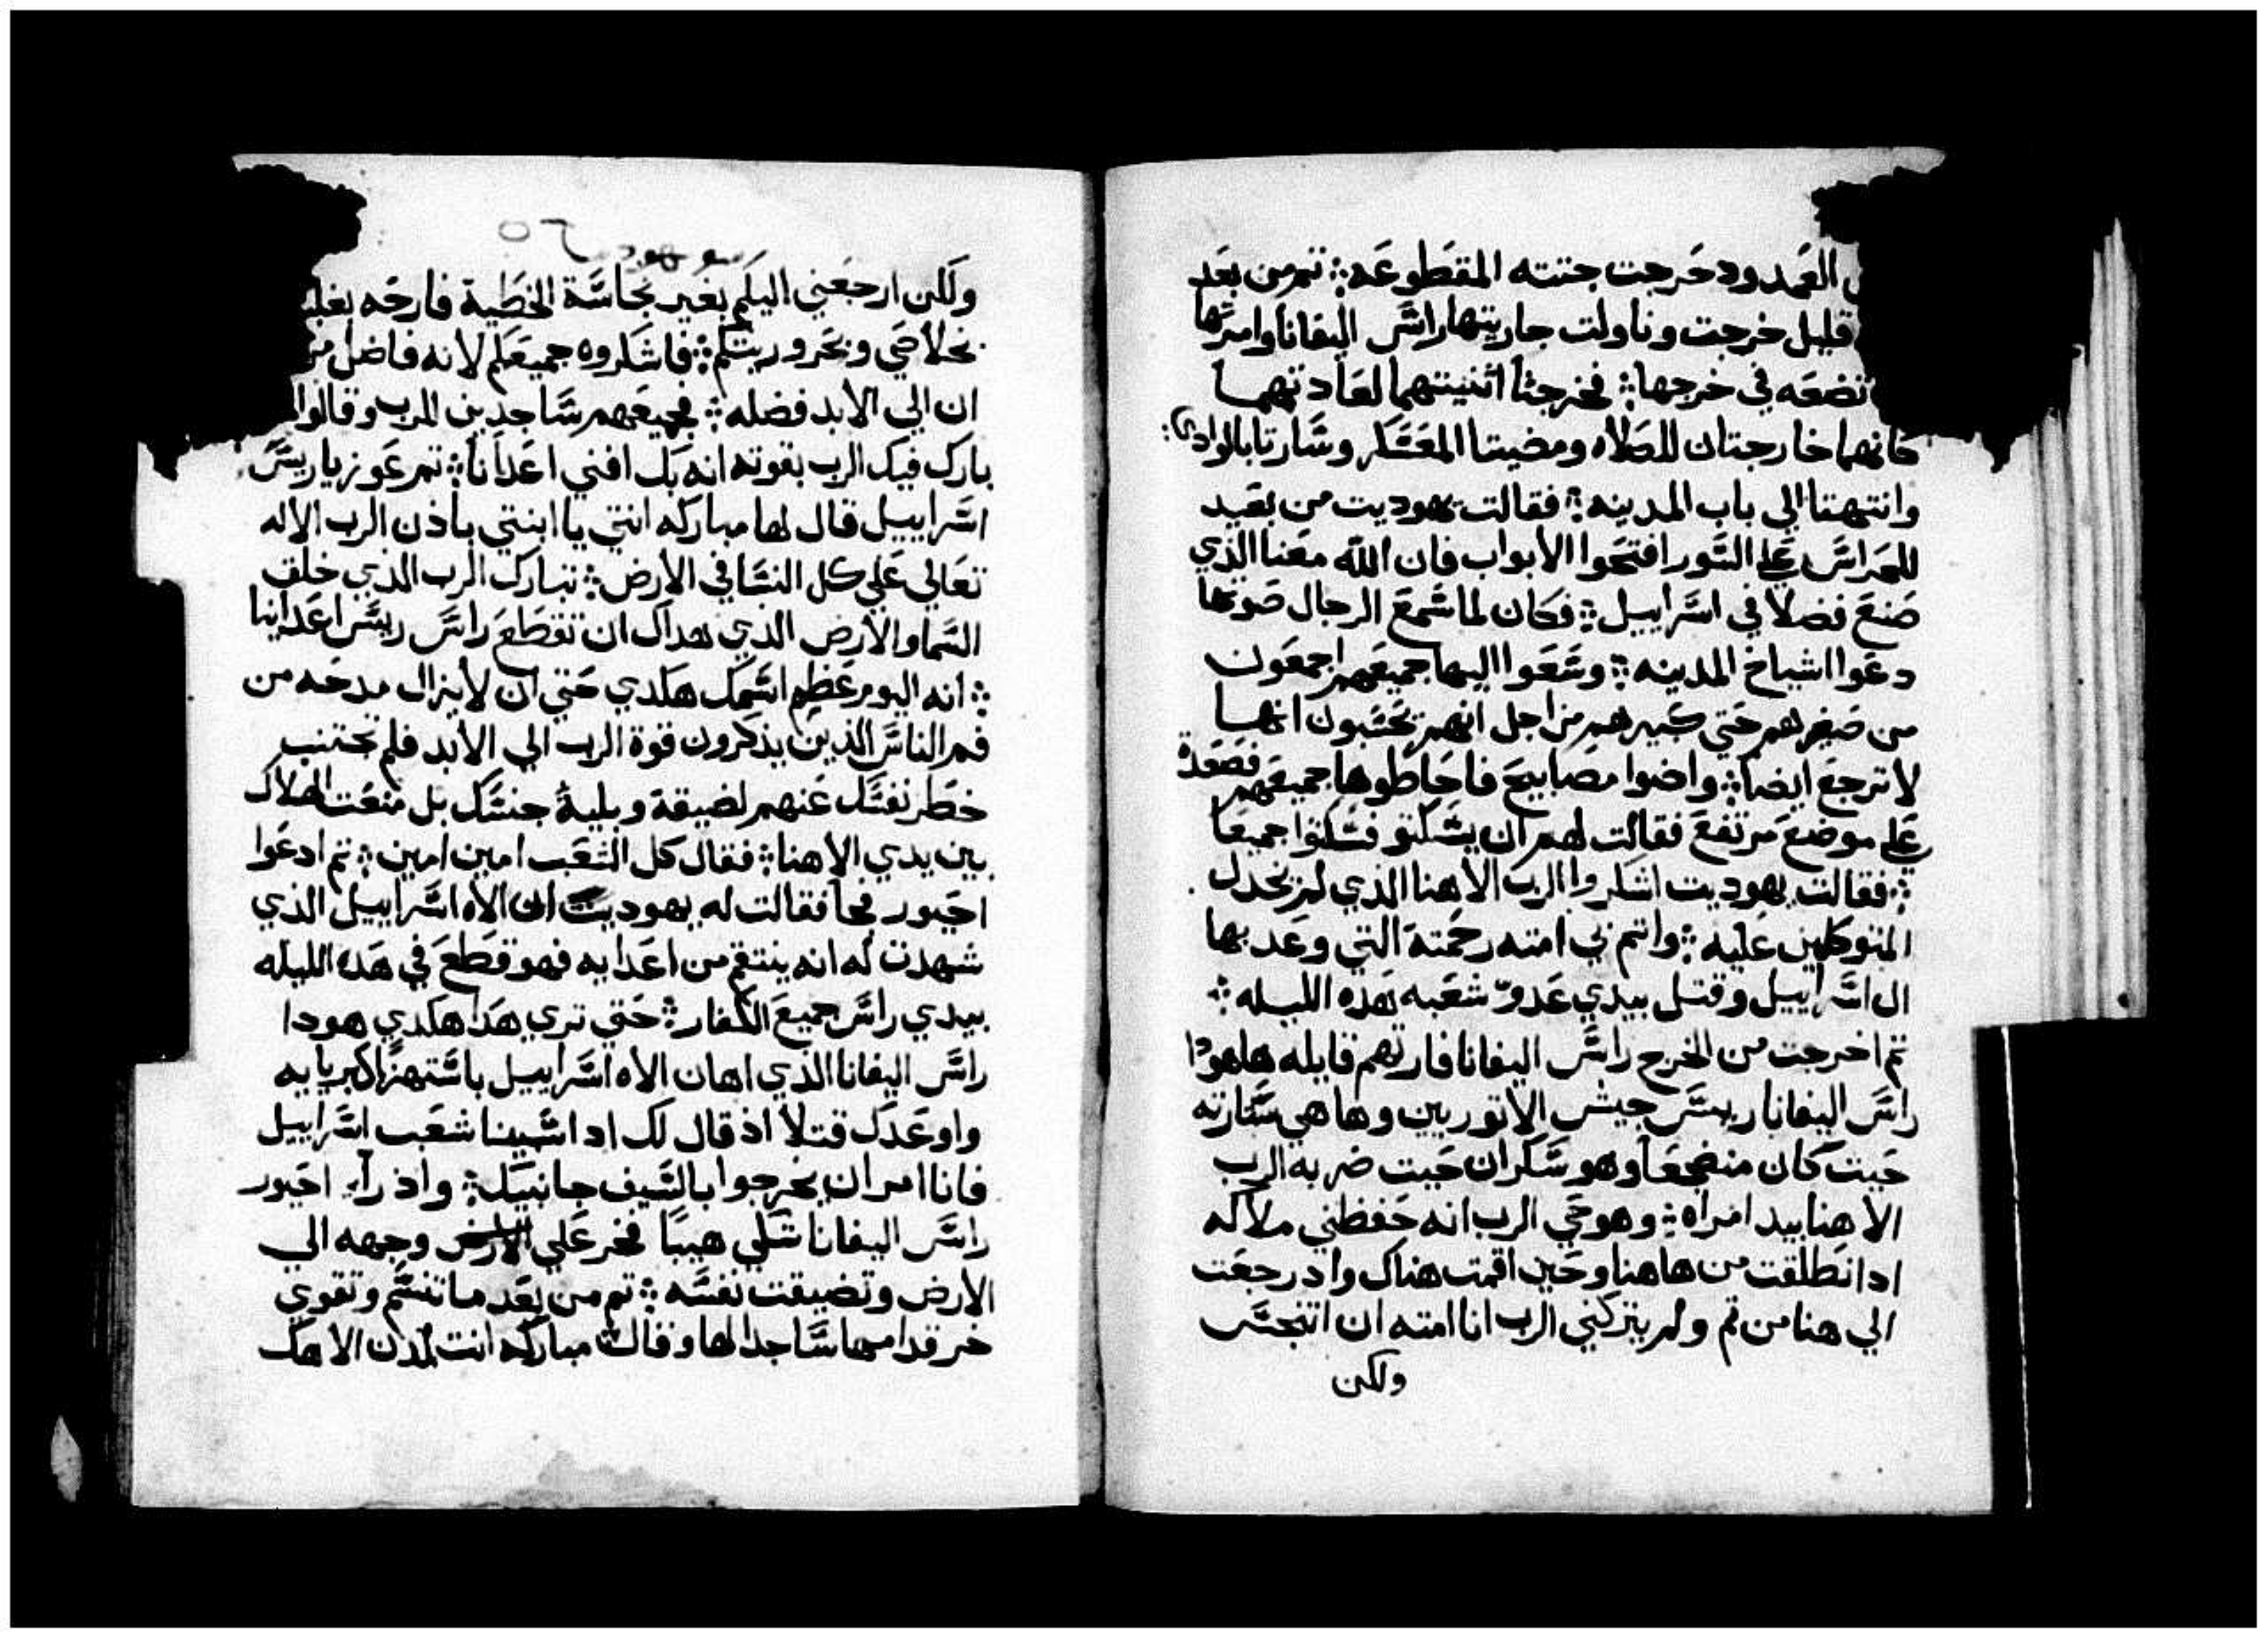 العمدود حرجت جتته المقطوعه ؞ تمرمن بعد
قليل خرجت وناولت جاريتها راس اليفانا وامرتها
تضعه في خرجها ؞ فخرجتا اتنينتهما لعادتهما
كانهما خارجتان للصلاه ومضيتا المعسكر وسارتا بالوادي
وانتهتا الي باب المدينه ؞ فقالت يهوديت من بعيد
للحراس علي السور افتحوا الابواب فان الله معنا الذي
صنع فضلا في اسراييل ؞ فكان لما سمع الرجال صوتها
دعوا اشياخ المدينه ؞ وسعوا اليها جميعهم اجمعون
من صغيرهم حتي كبيرهم من اجل انهم تحسبون انها
لا ترجع ايضا ؞ واضوا مصابيح فاحاطوها جميعهم فصعدة
علي موضع مرتفع فقالت لهم ان يسكتو فسكتوا جميعا
؞ فقالت يهوديت اشكروا الرب الاهنا الذي لم يخدل
المتوكلين عليه ؞ واتم بي امته رحمته التي وعد بها
ال اسراييل وقتل بيدي عدو شعبه هده الليله ؞
تم اخرجت من الخرج راس اليفانا فارتهم قايله هاهودا
راس اليفانا رييس جيش الاتوريين وها هي ستارته
حيت كان منضجعا وهو سكران حيت ضربه الرب
الاهنا بيد امراه ؞ وهو حي الرب انه حفظني ملاكه
اد انطلقت من هاهنا وحين اقمت هناك واد رجعت
الي هنا من تم ولم يتركني الرب انا امته ان اتنجس
ولكن
ولكن ارجعني اليكم بغير نجاسة الخطية فارحه بغلبته
بخلاصي وبحروريتكم ؞ فاشكروه جميعكم لانه فاضل من
ان الي الابد فضله ؞ فجميعهم ساجدين للرب وقالوا
بارك فيك الرب بقوته انه بك افني اعدانا ؞ تمر عوزيا ريس
اسراييل قال لها مباركه انتي يا ابنتي باذن الرب الاله
تعالي علي كل النسا في الارض ؞ تبارك الرب الذي خلق
السما والارض الذي هداك ان تقطع راس رييس اعداينا
؞ انه اليوم عظم اسمك هكدي حتي ان لا يزال مدحه من
فم الناس الذين يذكرون قوة الرب الي الابد فلم تجتنب
خطر نفسك عنهم لضيقة وبلية جنسك بل منعت الهلاك
بين يدي الاهنا ؞ فقال كل الشعب امين امين ؞ تم ادعوا
احيور فجا فقالت له يهوديت ان الاه اسراييل الذي
شهدت له انه ينتقم من اعدايه فهو قطع في هده الليله
بيدي راس جميع الكفار ؞ حتي تري هدا هكدي هودا
راس اليفانا الذي اهان الاه اسراييل باستهزا كبريايه
واوعدك قتلا اذ قال لك اد اسبينا شعب اسراييل
فانا امر ان يخرجوا بالسيف جانبيك ؞ واذ راي احيور
راس اليفانا شكلي هيبا فخر علي الارض وجهه الي
الارض وتضيقت نفسه ؞ تم من بعد ما تنسم وتقوي
خر قدامها ساجدا لها وقالت مباركه انت لدن الاهك